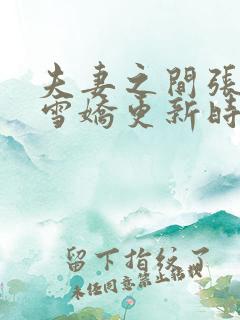 夫妻之間張
雪嬌更新時
留下指紋了
未任同意禁止拈棧